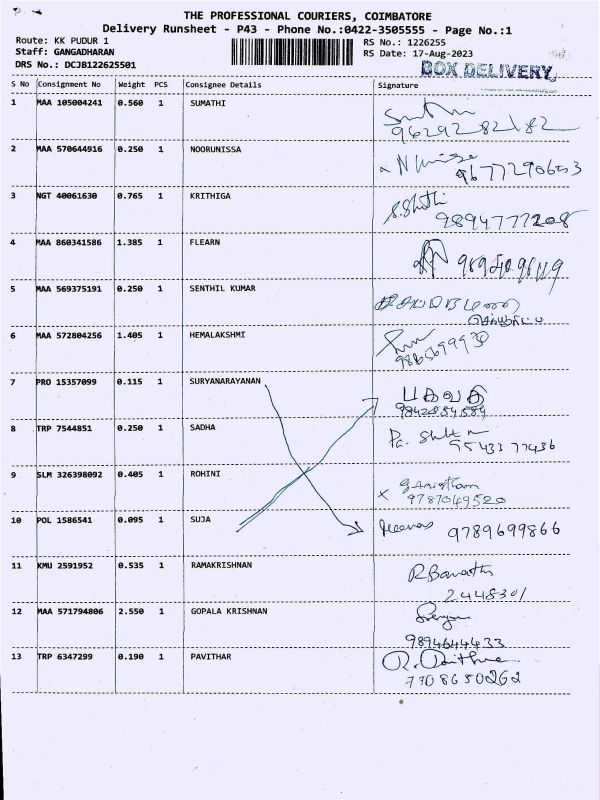 THE PROFESSIONAL COURIERS, COIMBATORE
Delivery Runsheet - P43 - Phone No.:0422-3505555 - Page No.:1
Route: KK PUDUR 1 RS No.: 1226255
Staff: GANGADHARAN RS Date: 17-Aug-2023
DRS No.: DCJB122625501 BOX DELIVERY
S No Consignment No Weight PCS Consignee Details Signature
1 MAA 105004241 0.560 1 SUMATHI
9629282182
2 MAA 570644916 0.250 1 NOORUNISSA
9677290653
3 NGT 40061630 0.765 1 KRITHIGA
9894777208
4 MAA 860341586 1.385 1 FLEARN
5 MAA 569375191 0.250 1 SENTHIL KUMAR
6 MAA 572804256 1.405 1 HEMALAKSHMI
9865699930
7 PRO 15357099 0.115 1 SURYANARAYANAN பகவதி
9842854584
8 TRP 7544851 0.250 1 SADHA
9543377436
9 SLM 326398092 0.405 1 ROHINI
9787049520
10 POL 1586541 0.095 1 SUJA 9789699866
11 KMU 2591952 0.535 1 RAMAKRISHNAN
2448301
12 MAA 571794806 2.550 1 GOPALA KRISHNAN
9894644433
13 TRP 6347299 0.190 1 PAVITHAR
7708650262